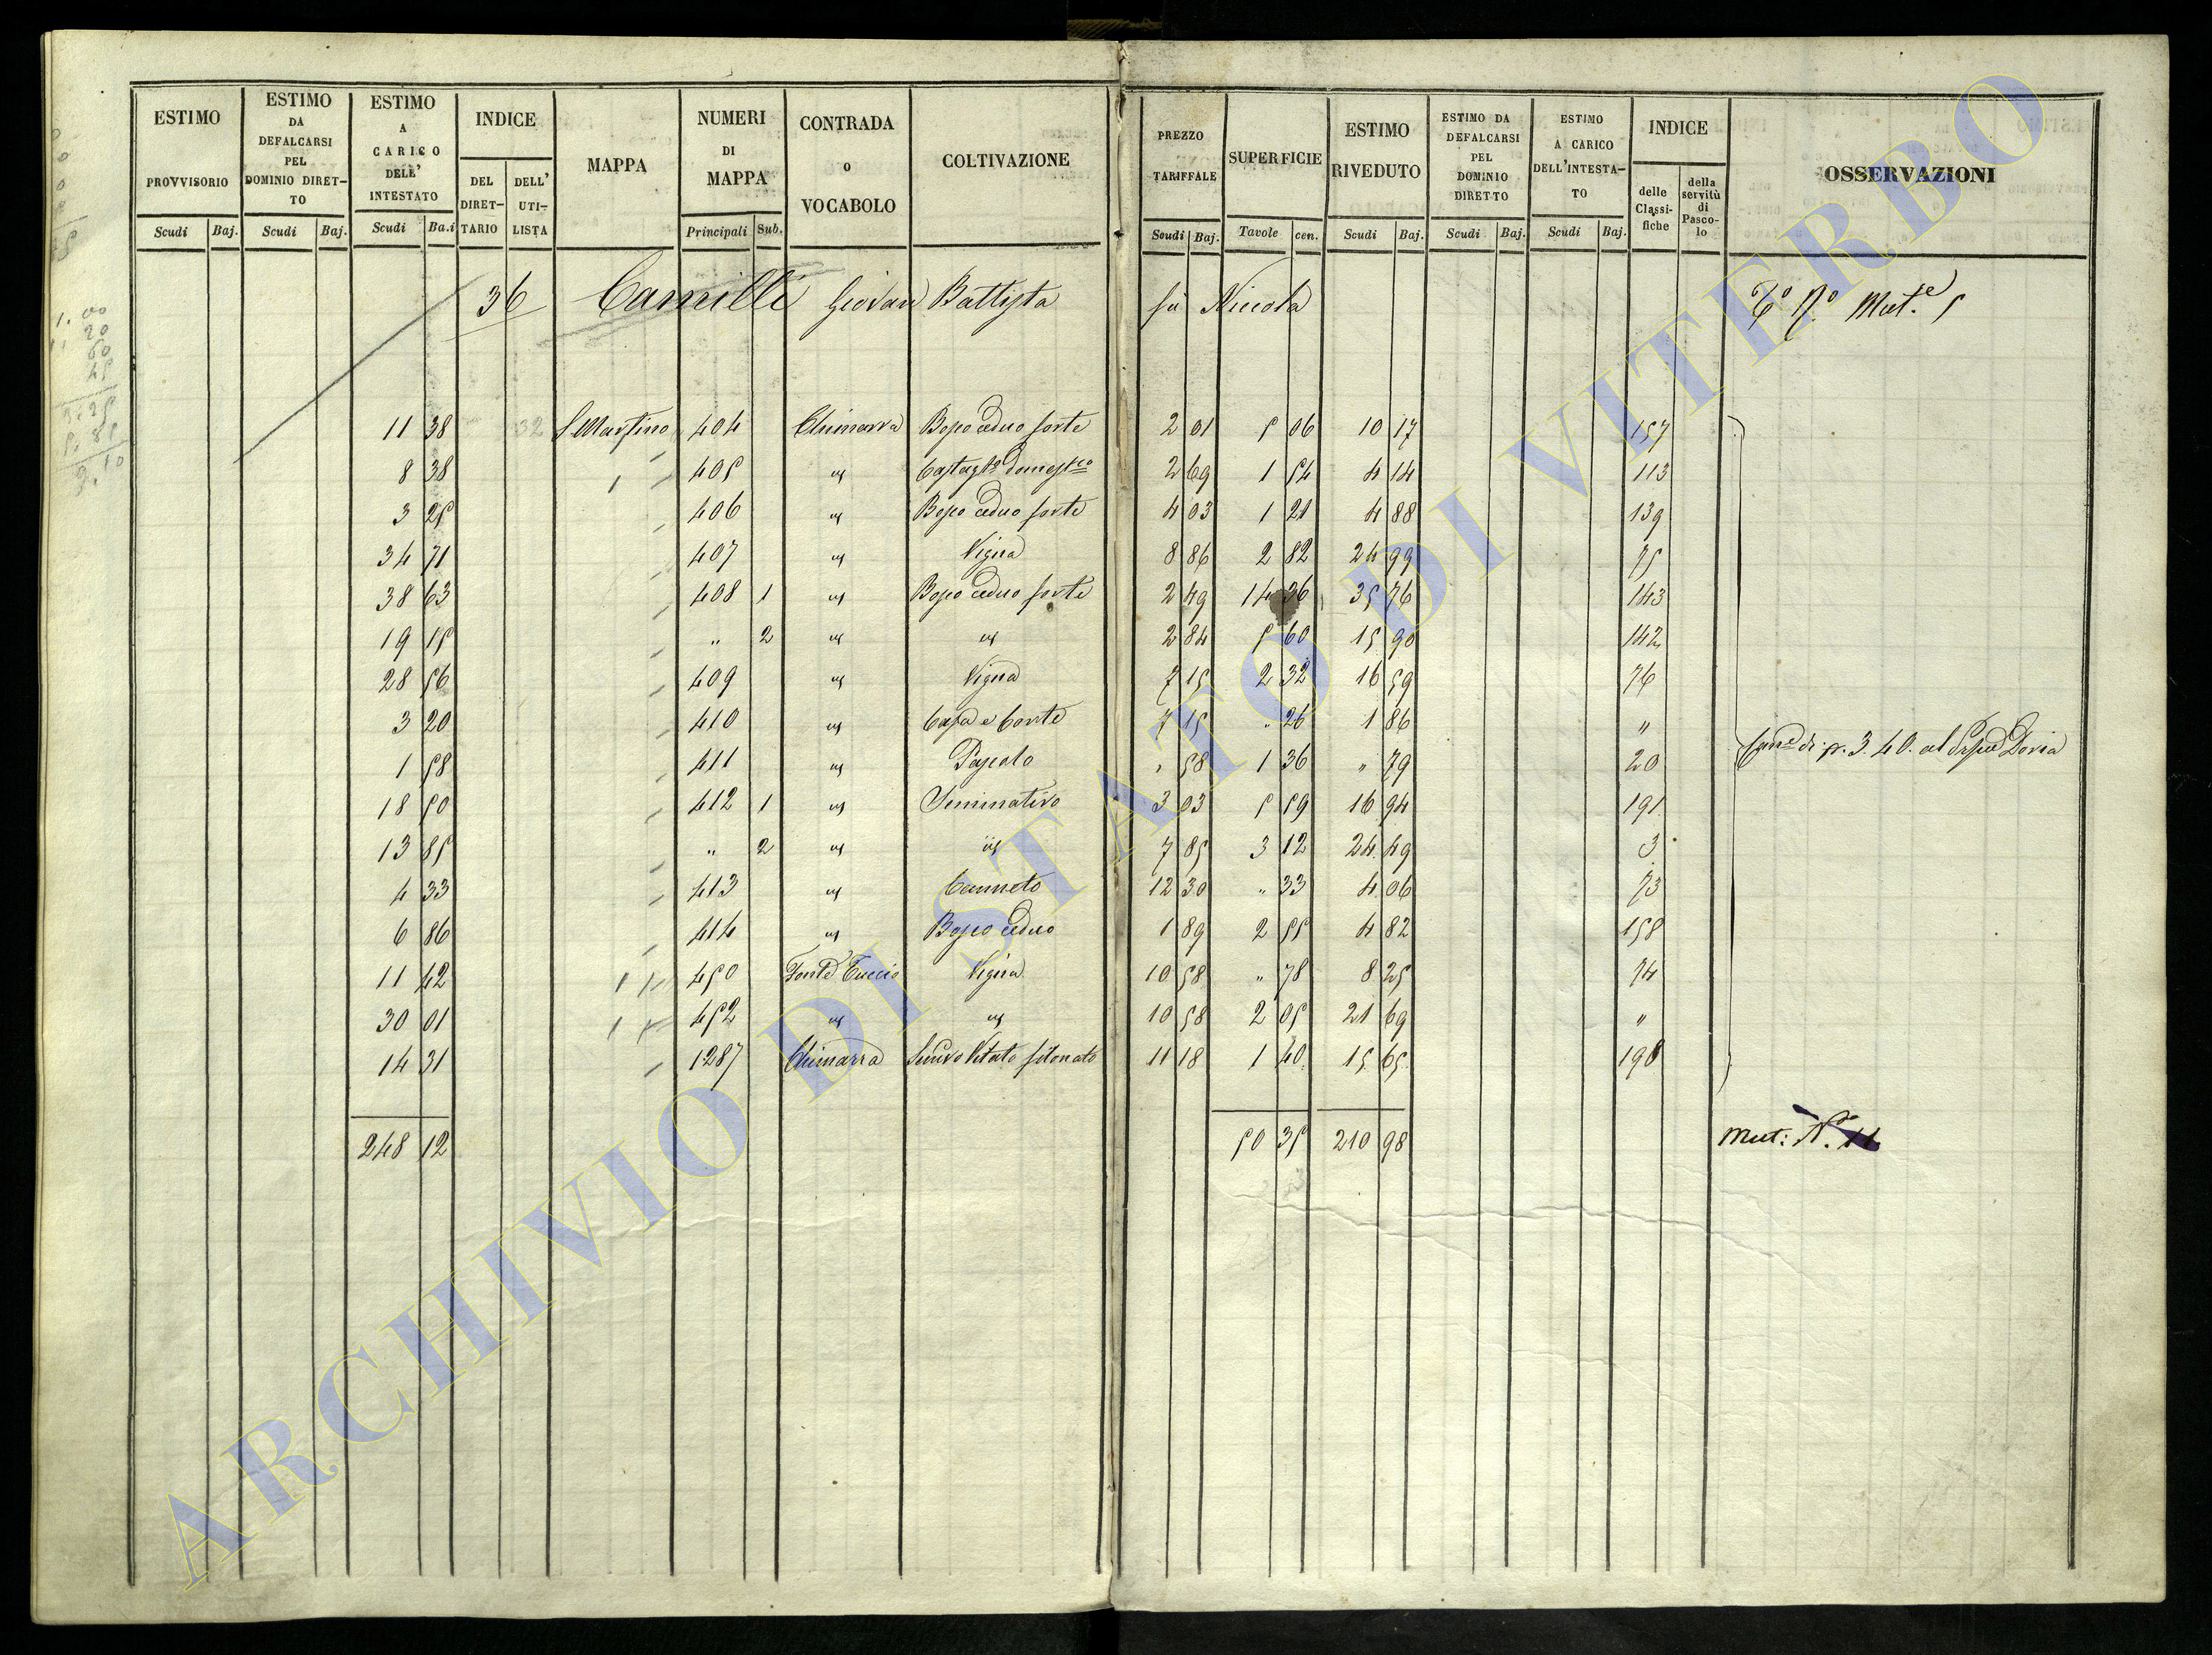 ESTIMO PROVVISORIO | ESTIMO DA DEFALCARSI PEL DOMINIO DIRETTO | ESTIMO A CARICO DELL' INTESTATO | INDICE | MAPPA | NUMERI DI MAPPA | CONTRADA o VOCABOLO | COLTIVAZIONE | PREZZO TARIFFALE | SUPERFICIE | ESTIMO RIVEDUTO | ESTIMO DA DEFALCARSI PEL DOMINIO DIRETTO | ESTIMO A CARICO DELL'INTESTATO | INDICE | OSSERVAZIONI
DEL DIRETTARIO | DELL' UTILISTA | delle Classifiche | della servitù di Pascolo
Scudi | Baj. | Scudi | Baj. | Scudi | Ba.i | Principali | Sub. | Scudi | Baj. | Tavole | cen. | Scudi | Baj. | Scudi | Baj. | Scudi | Baj.
36 Camilli Giovan Battista fu Niccola
11 38 | 32 | S Martino | 404 | Chimarra | Bosco ceduo forte | 2 01 | 5 06 | 10 17 | 157
8 38 | 405 | " | Castagto domestco | 2 69 | 1 54 | 4 14 | 113
3 25 | 406 | " | Bosco ceduo forte | 4 03 | 1 21 | 4 88 | 139
34 71 | 407 | " | Vigna | 8 86 | 2 82 | 24 99 | 75
38 63 | 408 | 1 | " | Bosco ceduo forte | 2 49 | 14 36 | 35 76 | 143
19 15 | " | 2 | " | " | 2 84 | 5 60 | 15 90 | 142
28 56 | 409 | " | Vigna | 7 15 | 2 32 | 16 59 | 76
3 20 | 410 | " | Casa e Corte | 7 15 | " 26 | 1 86 | "
1 58 | 411 | " | Pascolo | " 58 | 1 36 | " 79 | 20
18 50 | 412 | 1 | " | Seminativo | 3 03 | 5 59 | 16 94 | 191
13 85 | " | 2 | " | " | 7 85 | 3 12 | 24 49 | 3
4 33 | 413 | " | Canneto | 12 30 | " 33 | 4 06 | 73
6 86 | 414 | " | Bosco ceduo | 1 89 | 2 55 | 4 82 | 158
11 42 | 450 | Fonte Tuccio | Vigna | 10 58 | " 78 | 8 25 | 74
30 01 | 452 | " | " | 10 58 | 2 05 | 21 69 | "
14 31 | 1287 | Chimarra | 11 18 | 1 40 | 15 65 | 196
248 12 | 50 35 | 210 98
Mut: N.
ARCHIVIO DI STATO DI VITERBO